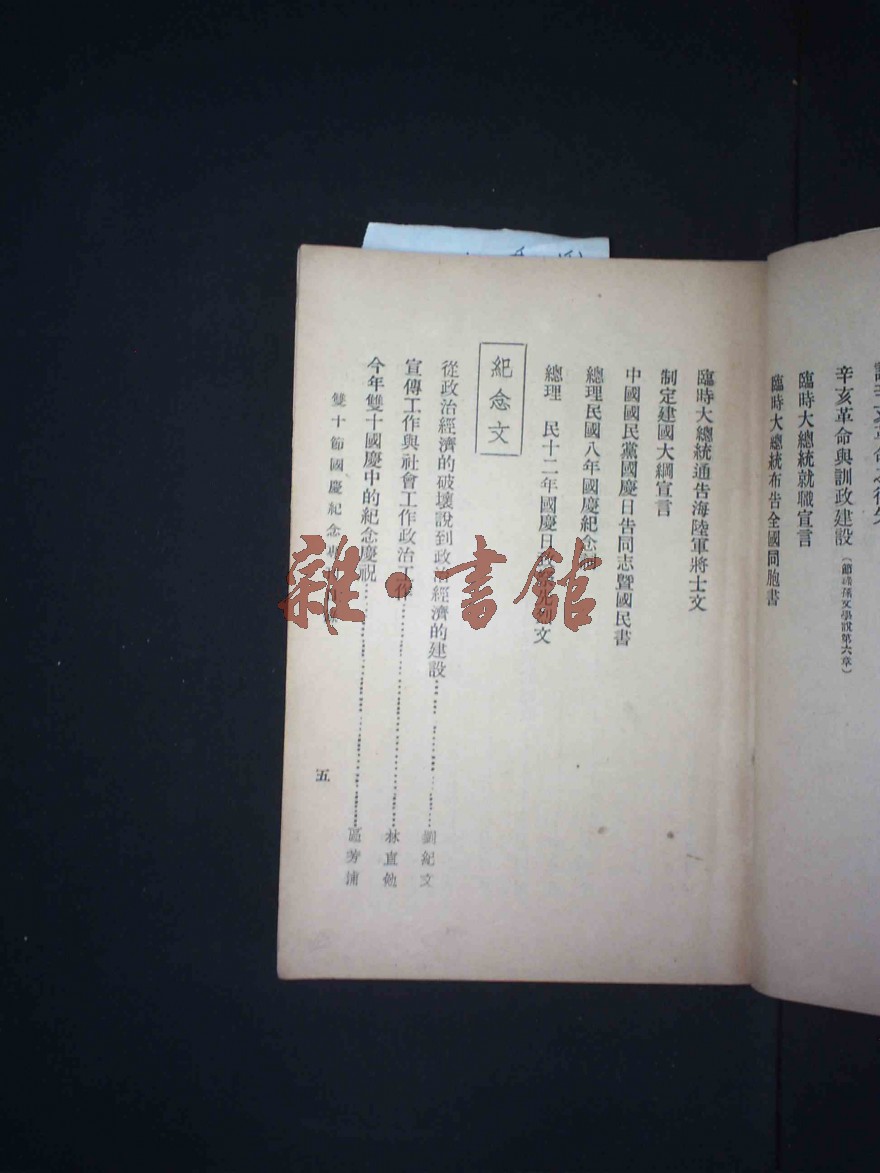 辛亥革命與訓政建設(節錄孫文學說第六章)
臨時大總統就職宣言
臨時大總統布告全國同胞書
臨時大總統通告海陸軍將士文
制定建國大綱宣言
中國國民黨國慶日告同志暨國民書
總理民國八年國慶紀念
總理 民十二年國慶日 文
紀念文
從政治經濟的破壞說到政治經濟的建設 劉紀文
宣傳工作與社會工作政治工作 林直勉
今年雙十國慶中的紀念慶祝 區芳浦
雙十節國慶紀念專
五
雜·書館